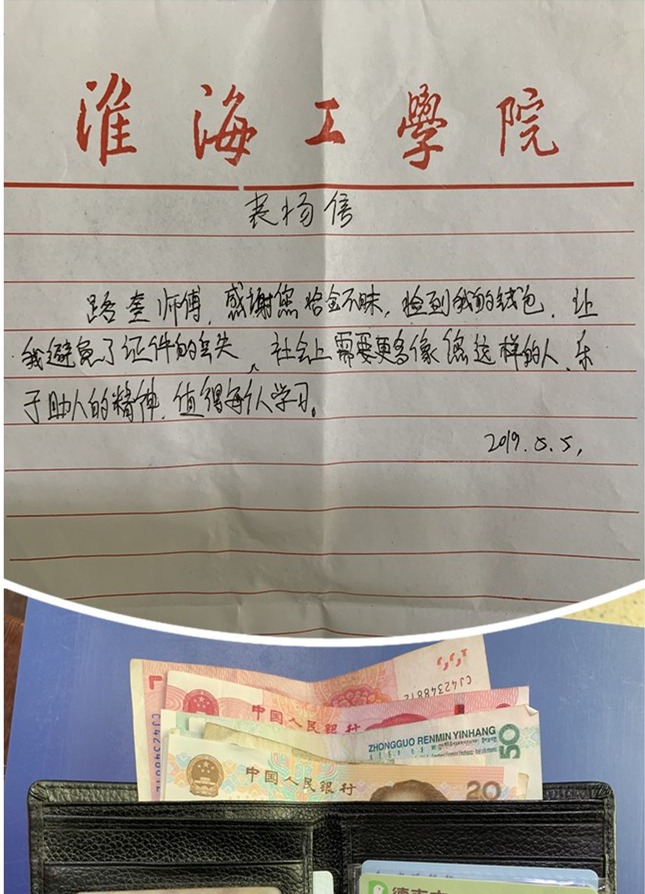 淮海工學院
表扬信
路奎师傅，感谢您拾金不昧，捡到我的钱包，让
我避免了证件的丢失，社会上需要更多像您这样的人，乐
于助人的精神，值得每个人学习。
2019.5.5.
CJ42348812
中国人民银行
ZHONGGUO RENMIN YINHANG
50
中国人民银行
20